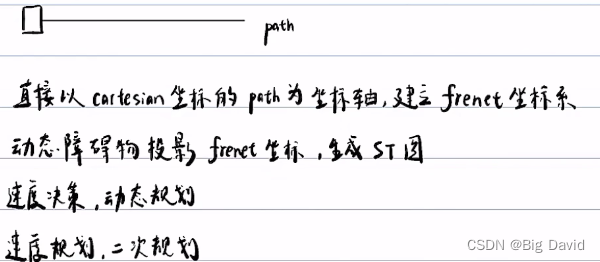 path
直接以 cartesian 坐标的 path 为坐标轴,建立 frenet 坐标系
动态障碍物投影 frenet 坐标,生成 ST 图
速度决策,动态规划
速度规划,二次规划
CSDN @Big David